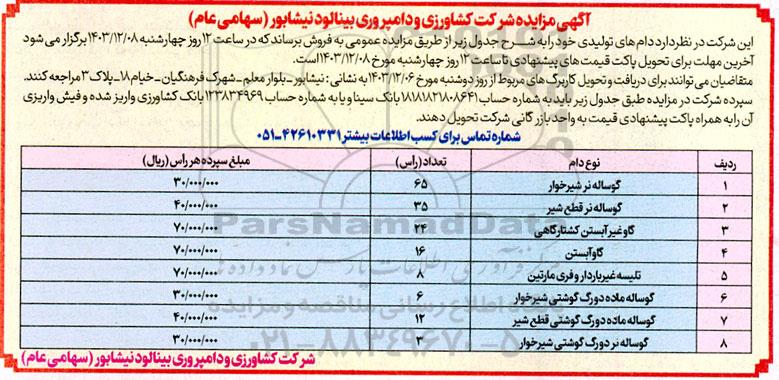 آگهی مزایده شرکت کشاورزی و دامپروری بینالود نیشابور (سهامی عام)
این شرکت در نظر دارد دام های تولیدی خود را به شرح جدول زیر از طریق مزایده عمومی به فروش برساند که در ساعت ۱۲ روز چهارشنبه ۱۴۰۳/۱۲/۰۸ برگزار می شود
آخرین مهلت برای تحویل پاکت قیمت های پیشنهادی تا ساعت ۱۲ روز چهارشنبه مورخ ۱۴۰۳/۱۲/۰۸ است.
متقاضیان می توانند برای دریافت و تحویل کاربرگ های مربوط از روز دوشنبه مورخ ۱۴۰۳/۱۲/۰۶ به نشانی: نیشابور - بلوار معلم - شهرک فرهنگیان - خیام ۱۸ - پلاک ۳ مراجعه کنند.
سپرده شرکت در مزایده طبق جدول زیر باید به شماره حساب ۱۸۱۸۱۸۲۱۸۰۸۶۴۱ بانک سینا و یا به شماره حساب ۱۲۳۸۳۴۹۶۹ بانک کشاورزی واریز شده و فیش واریزی
آن را به همراه پاکت پیشنهادی قیمت به واحد بازرگانی شرکت تحویل دهند.
شماره تماس برای کسب اطلاعات بیشتر ۴۲۶۱۰۳۳۱-۰۵۱
ردیف نوع دام تعداد (راس) مبلغ سپرده هر راس (ریال)
۱ گوساله نر شیرخوار ۶۵ ۳۰/۰۰۰/۰۰۰
۲ گوساله نر قطع شیر ۳۵ ۴۰/۰۰۰/۰۰۰
۳ گاو غیر آبستن کشتارگاهی ۲۴ ۷۰/۰۰۰/۰۰۰
۴ گاو آبستن ۱۶ ۷۰/۰۰۰/۰۰۰
۵ تلیسه غیر باردار و فری مارتین ۸ ۷۰/۰۰۰/۰۰۰
۶ گوساله ماده دورگ گوشتی شیرخوار ۶ ۳۰/۰۰۰/۰۰۰
۷ گوساله ماده دورگ گوشتی قطع شیر ۱۲ ۴۰/۰۰۰/۰۰۰
۸ گوساله نر دورگ گوشتی شیرخوار ۳ ۳۰/۰۰۰/۰۰۰
شرکت کشاورزی و دامپروری بینالود نیشابور (سهامی عام)
ParsNamadData
۰۲۱-۸۸۳۴۹۶۷۰-۵